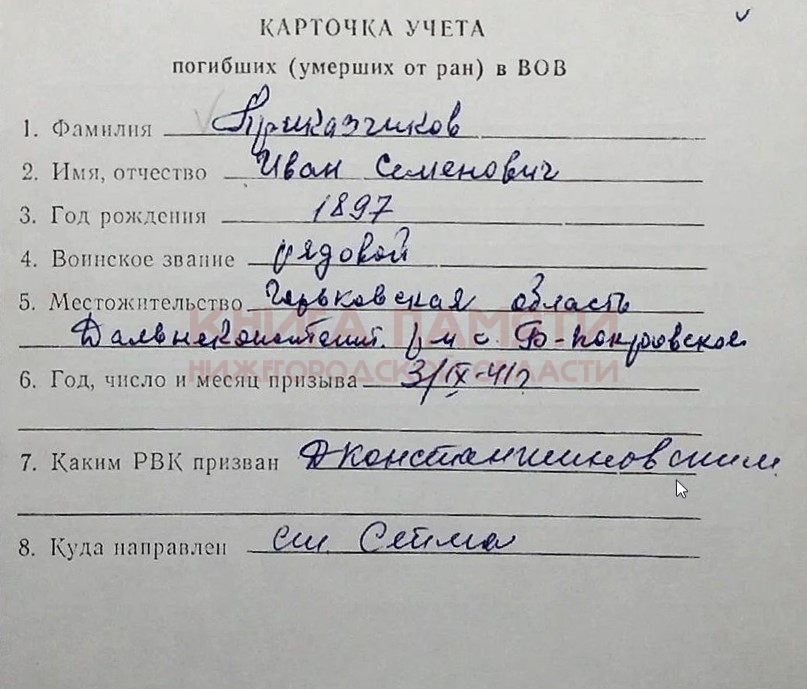 КАРТОЧКА УЧЕТА
погибших (умерших от ран) в ВОВ
1. Фамилия Приказчиков
2. Имя, отчество Иван Семенович
3. Год рождения 1897
4. Воинское звание рядовой
5. Местожительство Горьковская область
Дальнеконстант. р-н с. Б-Покровское
КНИГА ПАМЯТИ
НИЖЕГОРОДСКОЙ ОБЛАСТИ
6. Год, число и месяц призыва 3/IX-41г
7. Каким РВК призван Дконстантиновским
8. Куда направлен ст. Сейма